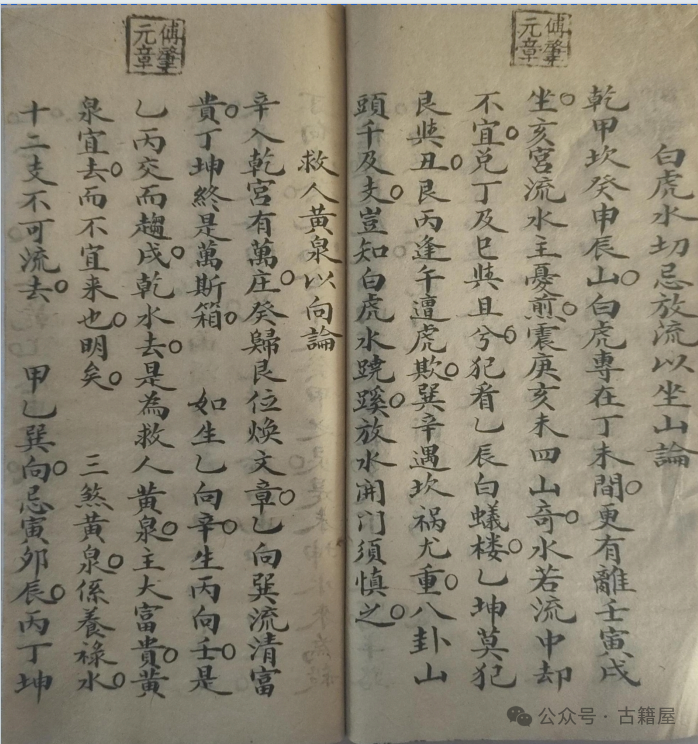 傅肇
元章
白虎水切忌放流以坐山論
乾甲坎癸申辰山白虎專在丁未間更有離壬寅戌
坐亥宮流水主憂煎震庚亥未四山奇水若流申却
不宜兌丁及巳與丑兮犯着乙辰白蟻楼乙坤莫犯
艮與丑艮丙逢午遭虎欺巽辛遇坎禍尤重八卦山
頭千及支豈知白虎水蹺蹊放水開门須慎之
傅肇
元章
救人黃泉以向論
辛入乾宮有萬庄癸歸艮位煥文章乙向巽流清富
貴丁坤終是萬斯箱 如生乙向辛生丙向壬是
乙丙交而趨戌乾水去是為救人黃泉主大富貴黃
泉宜去而不宜来也明矣 三煞黃泉係養祿水
十二支不可流去 甲乙巽向忌寅卯辰丙丁坤
公众号·古籍屋